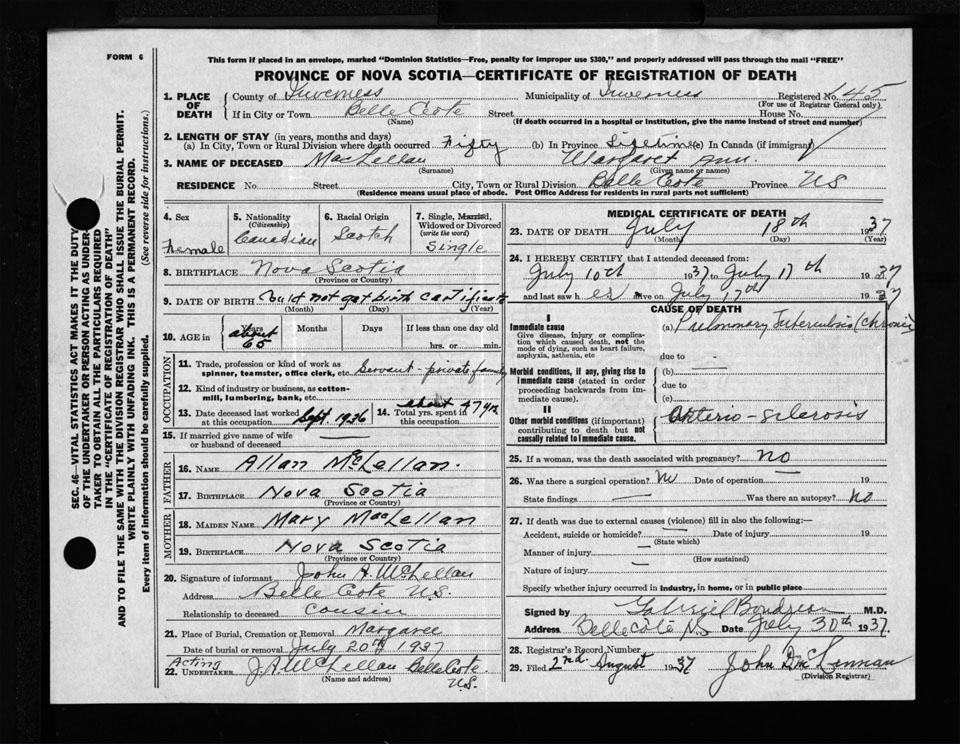 FORM 6
This form if placed in an envelope, marked "Dominion Statistics—Free, penalty for improper use $300," and properly addressed will pass through the mail "FREE"
PROVINCE OF NOVA SCOTIA—CERTIFICATE OF REGISTRATION OF DEATH
1. PLACE OF DEATH
County of Inverness Municipality of Inverness Registered No. 45
(For use of Registrar General only)
If in City or Town Belle Cote Street House No.
(Name) (If death occurred in a hospital or institution, give the name instead of street and number)
2. LENGTH OF STAY (in years, months and days)
(a) In City, Town or Rural Division where death occurred Fifty (b) In Province Lifetime (c) In Canada (if immigrant)
3. NAME OF DECEASED MacLellan Margaret Ann.
(Surname) (Given name or names)
RESIDENCE No. Street City, Town or Rural Division Belle Cote Province NS
(Residence means usual place of abode. Post Office Address for residents in rural parts not sufficient)
4. Sex Female
5. Nationality (Citizenship) Canadian
6. Racial Origin Scotch
7. Single, Married, Widowed or Divorced (write the word) Single
8. BIRTHPLACE Nova Scotia
(Province or Country)
9. DATE OF BIRTH Could not get birth certificate
(Month) (Day) (Year)
10. AGE in Years about 65 Months Days If less than one day old hrs. or min.
OCCUPATION
11. Trade, profession or kind of work as spinner, teamster, office clerk, etc. Servant - private family
12. Kind of industry or business, as cotton-mill, lumbering, bank, etc.
13. Date deceased last worked at this occupation Sept. 1936
14. Total yrs. spent in this occupation about 47 yrs
15. If married give name of wife or husband of deceased
FATHER
16. NAME Allan McLellan.
17. BIRTHPLACE Nova Scotia
(Province or Country)
MOTHER
18. MAIDEN NAME Mary MacLellan
19. BIRTHPLACE Nova Scotia
(Province or Country)
20. Signature of informant John A McLellan
Address Belle Cote N.S.
Relationship to deceased cousin
21. Place of Burial, Cremation or Removal Margaree
Date of burial or removal July 20th 1937
22. Acting UNDERTAKER J. A McLellan Belle Cote N.S.
(Name and address)
MEDICAL CERTIFICATE OF DEATH
23. DATE OF DEATH July 18th 1937
(Month) (Day) (Year)
24. I HEREBY CERTIFY that I attended deceased from:
July 10th 1937 to July 17th 1937
and last saw her alive on July 17th 1937
CAUSE OF DEATH
I
Immediate cause
Give disease, injury or complication which caused death, not the mode of dying, such as heart failure, asphyxia, asthenia, etc
(a) Pulmonary Tuberculosis (chronic)
due to
Morbid conditions, if any, giving rise to immediate cause (stated in order proceeding backwards from immediate cause).
(b)
due to
(c)
II
Other morbid conditions (if important) contributing to death but not causally related to immediate cause.
Arterio-sclerosis
25. If a woman, was the death associated with pregnancy? no
26. Was there a surgical operation? no Date of operation 19
State findings Was there an autopsy? no
27. If death was due to external causes (violence) fill in also the following:—
Accident, suicide or homicide? Date of injury 19
(State which)
Manner of injury
(How sustained)
Nature of injury
Specify whether injury occurred in industry, in home, or in public place
Signed by Gabriel Boudreau M.D.
Address Belle Côte NS Date July 30th 1937
28. Registrar's Record Number
29. Filed 2nd August 1937 John D McLennan
(Division Registrar)
SEC. 46—VITAL STATISTICS ACT MAKES IT THE DUTY
OF THE UNDERTAKER OR PERSON ACTING AS UNDERTAKER TO OBTAIN ALL THE PARTICULARS REQUIRED
IN THE "CERTIFICATE OF REGISTRATION OF DEATH"
AND TO FILE THE SAME WITH THE DIVISION REGISTRAR WHO SHALL ISSUE THE BURIAL PERMIT.
WRITE PLAINLY WITH UNFADING INK. THIS IS A PERMANENT RECORD.
Every item of information should be carefully supplied. (See reverse side for instructions.)